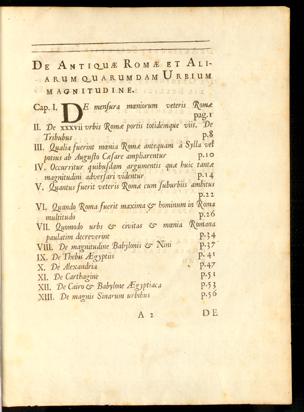 DE ANTIQUÆ ROMÆ ET ALI-
ARUM QUARUMDAM URBIUM
MAGNITUDINE.
Cap. I. DE mensura mæniorum veteris Romæ
pag.1
II. De xxxvii vrbis Romæ portis totidemque viis. De
Tribubus p.8
III. Qualia fuerint mænia Romæ antequam à Sylla vel
potius ab Augusto Cæsare ampliarentur p.10
IV. Occurritur quibusdam argumentis quæ huic tantæ
magnitudini adversari videntur p.14
V. Quantus fuerit veteris Romæ cum suburbiis ambitus
p.22
VI. Quando Roma fuerit maxima & hominum in Roma
multitudo p.26
VII. Quomodo urbs & civitas & mænia Romana
paulatim decreverint p.34
VIII. De magnitudine Babylonis & Nini p.37
IX. De Thebis Ægyptiis p.41
X. De Alexandria p.47
XI. De Carthagine p.51
XII. De Cairo & Babylone Ægyptiaca p.53
XIII. De magnis Sinarum urbibus p.56
A 2 DE